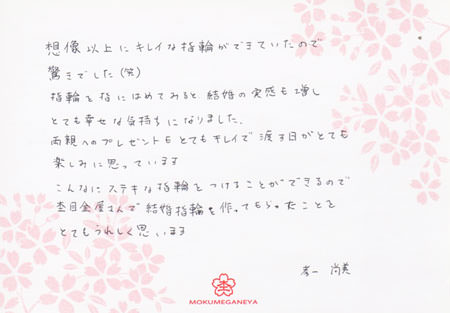 想像以上にキレイな指輪ができていたので
驚きでした(笑)
指輪を指にはめてみると結婚の実感も増し
とても幸せな気持ちになりました。
両親へのプレゼントもとてもキレイで渡す日がとても
楽しみに思っています
こんなにステキな指輪をつけることができるので
杢目金屋さんで結婚指輪を作ってもらったことを
とてもうれしく思います
孝一 尚美
MOKUMEGANEYA